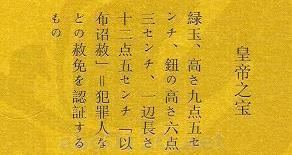 皇帝之宝
緑玉、高さ九点五セ
ンチ、鈕の高さ六点
三センチ、一辺長さ
十二点五センチ「以
布诏赦」＝犯罪人な
どの赦免を認証する
もの